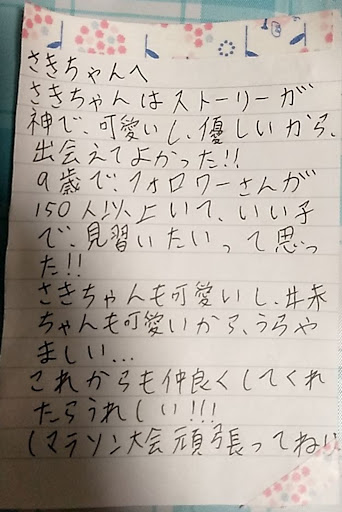 さきちゃんへ
さきちゃんはストーリーが
神で、可愛いし、優しいから、
出会えてよかった!!
9歳で、フォロワーさんが
150人以上いて、いい子
で、見習いたいって思っ
た!!
さきちゃんも可愛いし、妹
ちゃんも可愛いから、うらや
ましい...
これからも仲良くしてくれ
たらうれしい!!!
(マラソン大会頑張ってね!!